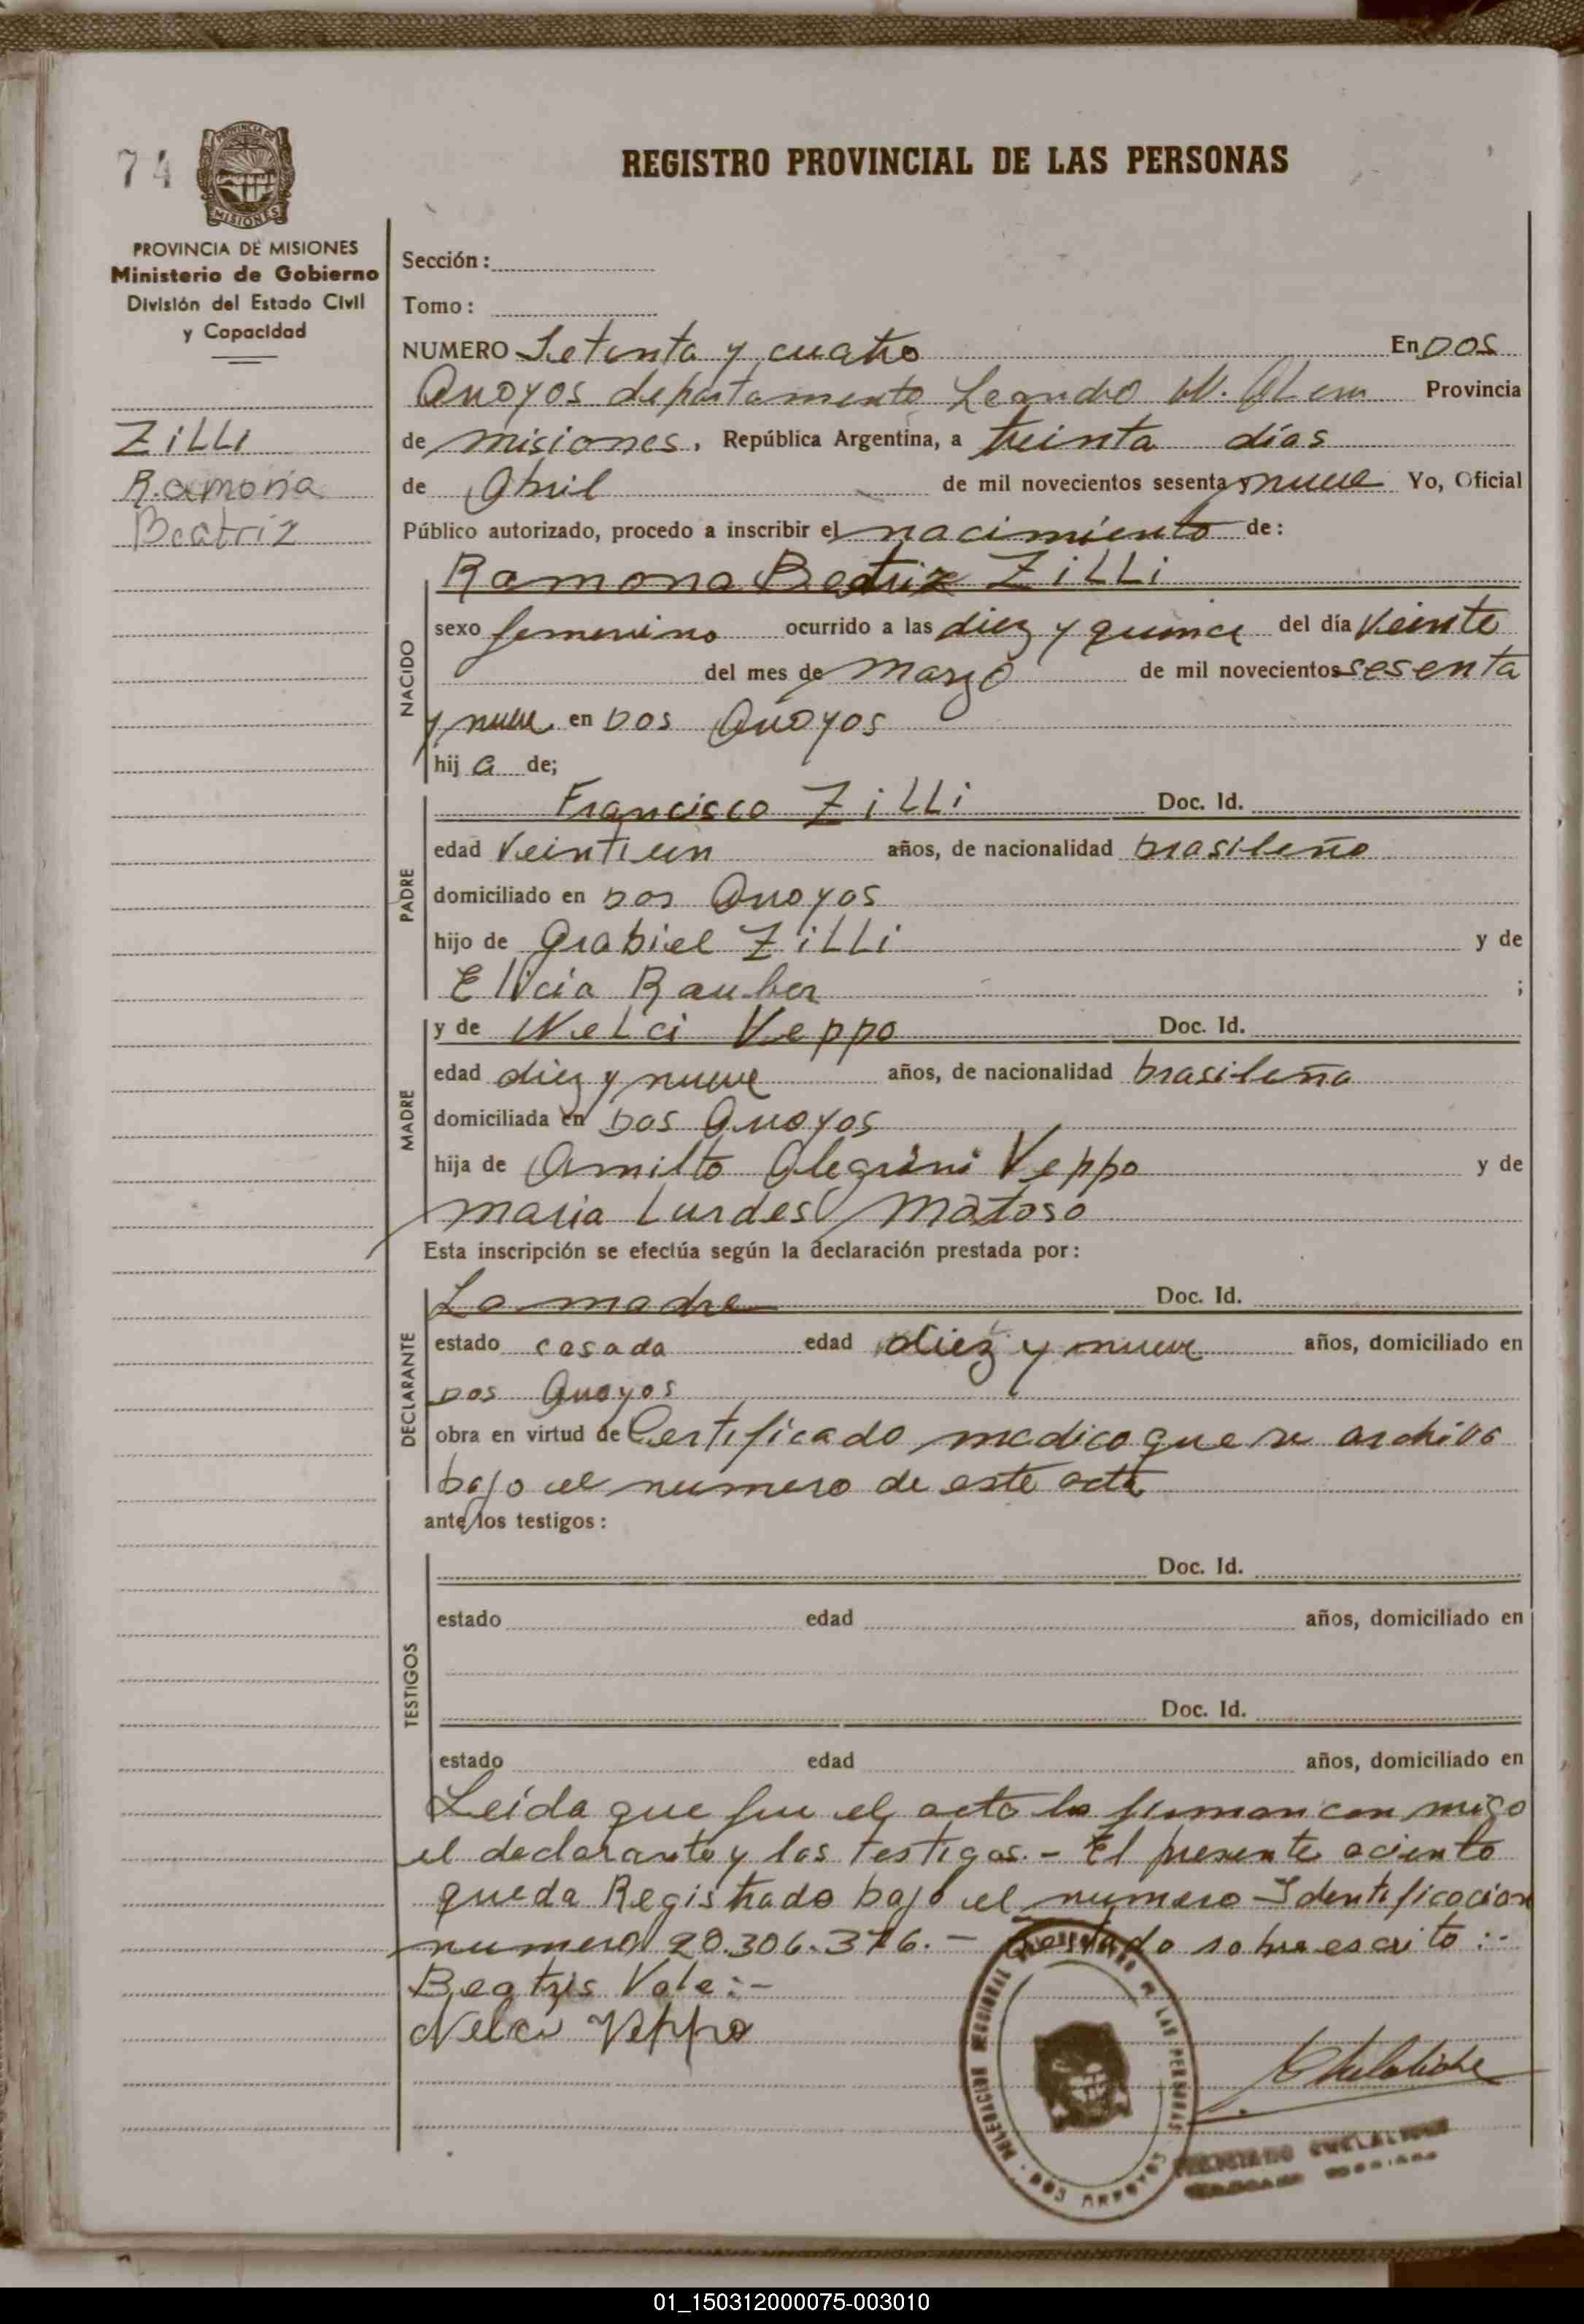 74
PROVINCIA DE
MISIONES
REGISTRO PROVINCIAL DE LAS PERSONAS
PROVINCIA DE MISIONES
Ministerio de Gobierno
División del Estado Civil
y Capacidad
Zilli
Ramona
Beatriz
Sección:
Tomo:
NUMERO Setenta y cuatro En Dos
Arroyos departamento Leandro N. Alem Provincia
de misiones, República Argentina, a treinta días
de Abril de mil novecientos sesenta y nueve Yo, Oficial
Público autorizado, procedo a inscribir el nacimiento de:
NACIDO
Ramona Beatriz Zilli
sexo femenino ocurrido a las diez y quince del día Veinte
del mes de marzo de mil novecientos sesenta
y nueve en Dos Arroyos
hij a de;
PADRE
Francisco Zilli Doc. Id.
edad Veintiun años, de nacionalidad brasileño
domiciliado en Dos Arroyos
hijo de Grabiel Zilli y de
Elicia Rauber ;
MADRE
y de Nelci Veppo Doc. Id.
edad diez y nueve años, de nacionalidad brasileña
domiciliada en Dos Arroyos
hija de Amilto Alegrini Veppo y de
maria Lurdes Matoso
Esta inscripción se efectúa según la declaración prestada por:
DECLARANTE
La madre Doc. Id.
estado casada edad diez y nueve años, domiciliado en
Dos Arroyos
obra en virtud de Certificado medico que se archiva
bajo el numero de este acta
ante los testigos:
TESTIGOS
Doc. Id.
estado edad años, domiciliado en
Doc. Id.
estado edad años, domiciliado en
Leida que fue el acta la firman con migo
el declarante y los testigos.- El presente aciento
queda Registrado bajo el numero Identificacion
numero 20.306.376.- Testado sobre escrito:-
Beatris Vale:-
Nelci Veppo
DELEGACION REGIONAL DE LAS PERSONAS
DOS ARROYOS
01_150312000075-003010